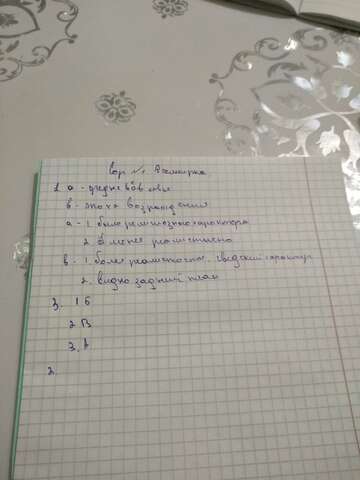 вар №1
1. а - средневековье
б - эпоха возрождения
а - 1. было религиозного характера
2. менее реалистично
в - 1 более реалистично, светский характер
2. видно задний план
3. 1 Б
2 В
3. А
2.